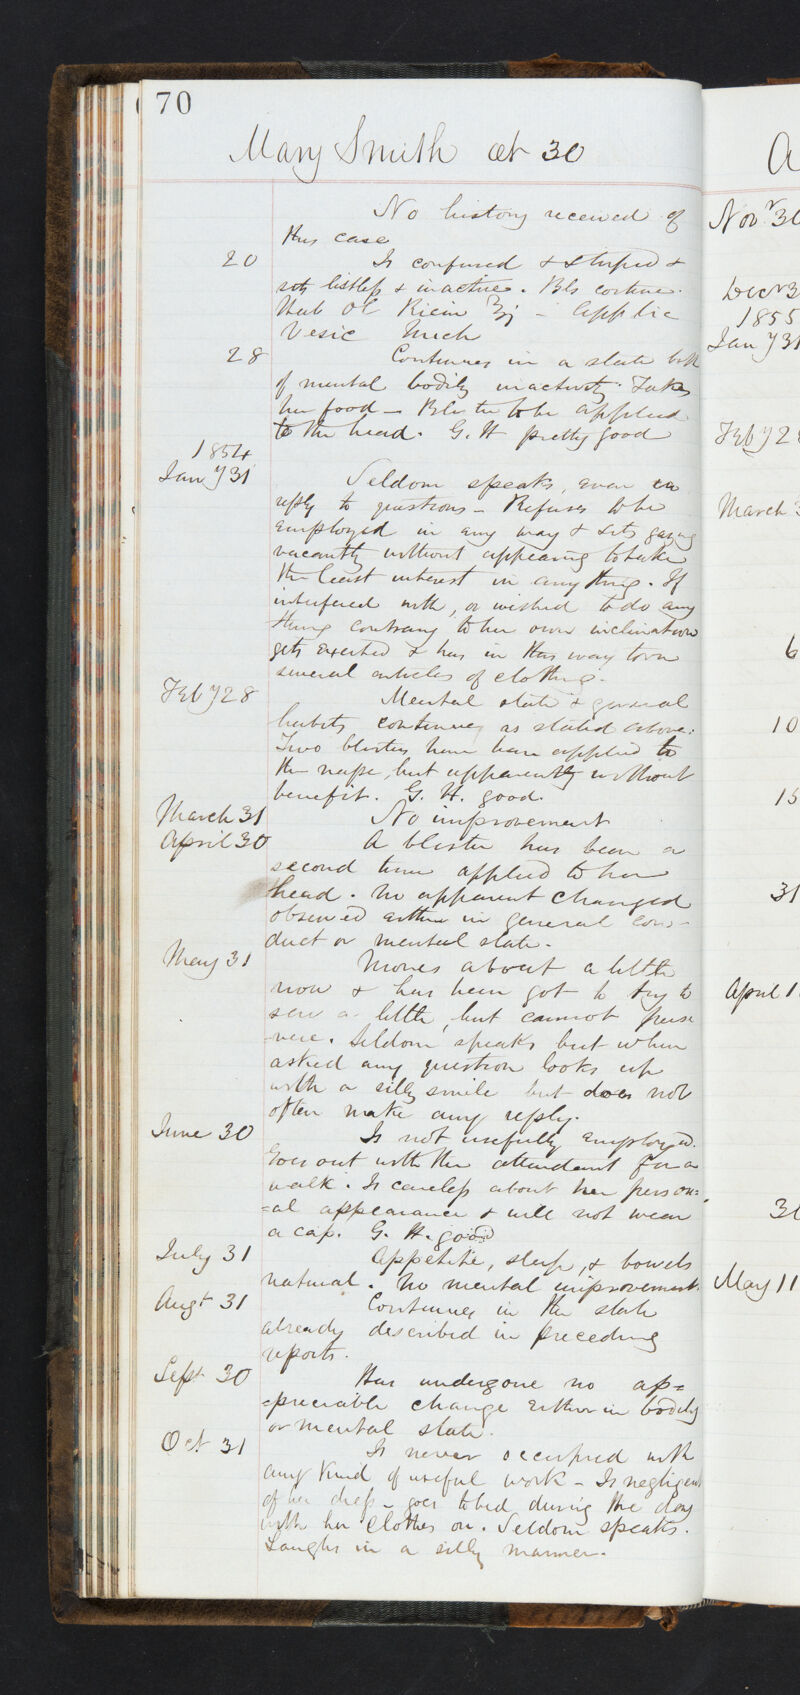 70
Mary Smith æt 30
No history received of
this case
20 Is confused & stupid &
sits listless & inactive. Bls costive.
Hab Ol Ricin ℥j – Applic
Vesic Nuch
28 Continues in a state both
of mental bodily inactivity. Takes
her food – Blister to be applied
to the head. G. H pretty good
1854
Jany 31 Seldom speaks, even in
reply to questions – Refuses to be
employed in any way & sits gazing
vacantly without appearing to take
the least interest in any thing. If
interfered with, or wished to do any
thing contrary to her own inclination
gets excited & has in this way torn
several articles of clothing.
Feby 28 Mental state & general
habits continue as stated above.
Two blisters have been applied to
the nape, but apparently without
benefit. G. H. good.
March 31 No improvement
April 30 A blister has been a
second time applied to her
head. No apparent changed
observed either in general con-
duct or mental state.
May 31 Moves about a little
now & has been got to try to
sew a little, but cannot perse
-vere. Seldom speaks but when
asked any question looks up
with a silly smile but does not
often make any reply.
June 30 Is not usefully employed.
Goes out with the attendant for a
walk. Is careless about her person=
=al appearance & will not wear
a cap. G. H. good
July 31 Appetite, sleep, & bowels
natural. No mental improvement.
Augt 31 Continues in the state
already described in preceding
reports.
Sept 30 Has undergone no ap=
=preciable change either in bodily
or mental state.
Oct 31 Is never occupied with
any kind of useful work – Is negligent
of her dress – goes to bed during the day
with her clothes on. Seldom speaks.
Laughs in a silly manner.
Novr 30
Decr 3
1855
Jany 31
Feby 28
March 3
6
10
15
31
April 1
30
May 11